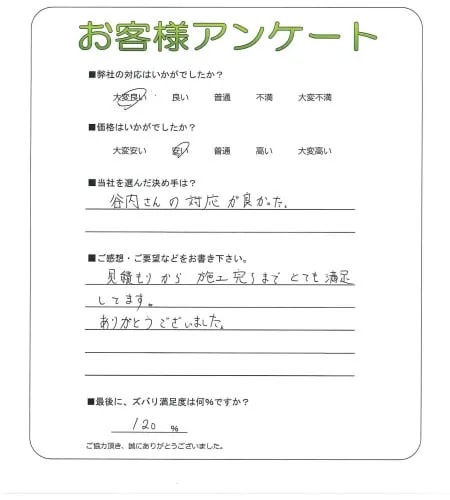 お客様アンケート
■弊社の対応はいかがでしたか？
大変良い 良い 普通 不満 大変不満
■価格はいかがでしたか？
大変安い 安い 普通 高い 大変高い
■当社を選んだ決め手は？
谷内さんの対応が良かった。
■ご感想・ご要望などをお書き下さい。
見積もりから 施工完了まで とても満足
してます。
ありがとうございました。
■最後に、ズバリ満足度は何％ですか？
120 ％
ご協力頂き、誠にありがとうございました。